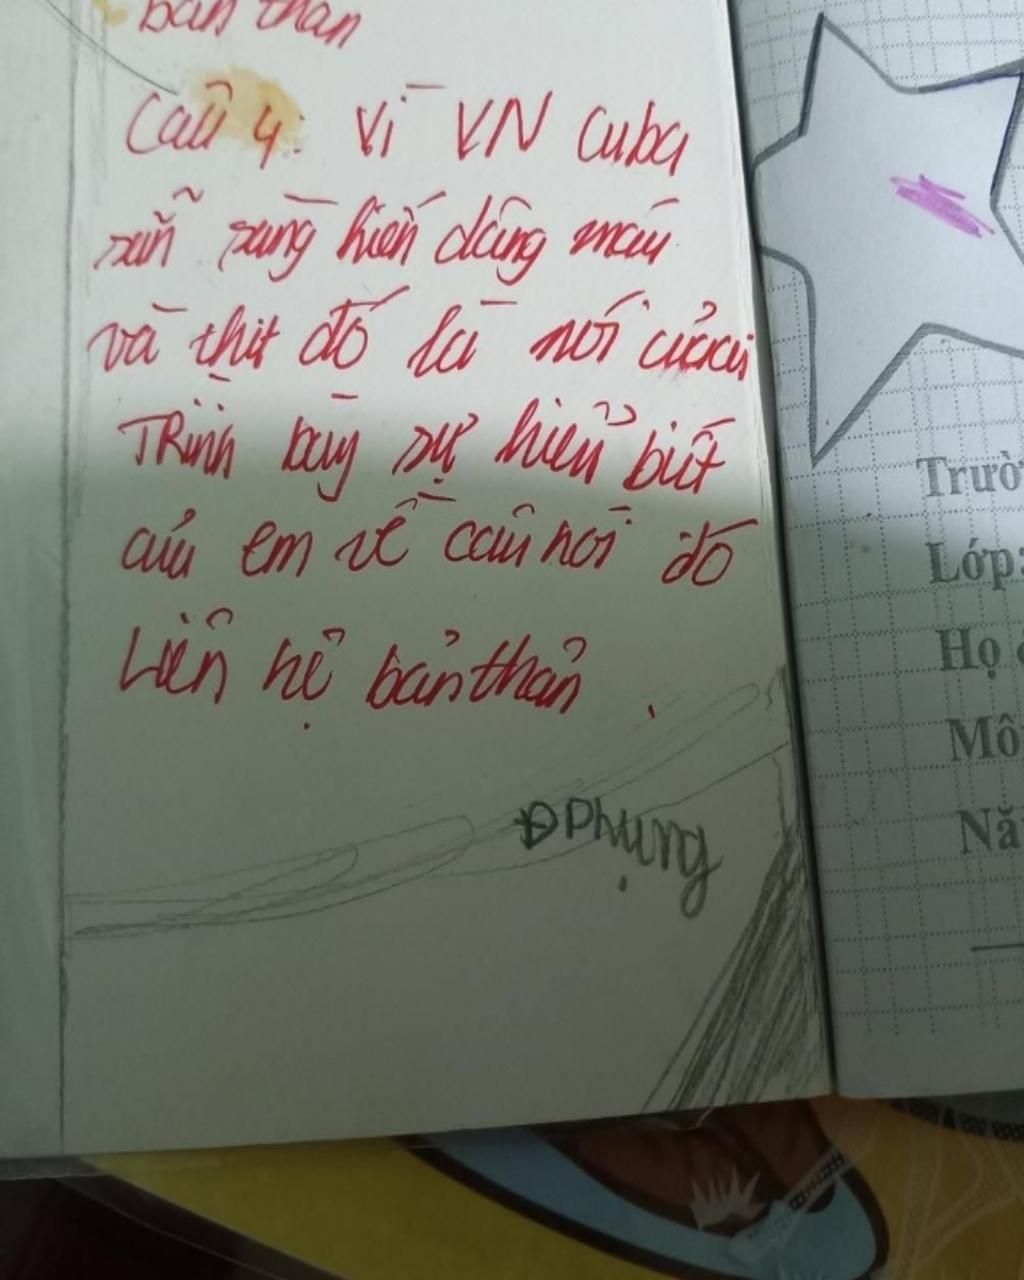 bản thân
Câu 4: Vì VN Cuba
sẵn sàng hiến dâng máu
và thịt đó là nói của ai
Trình bày sự hiểu biết
của em về câu nói đó
Liên hệ bản thân.
Đ Phụng
Trườ
Lớp:
Họ
Mô
Nă